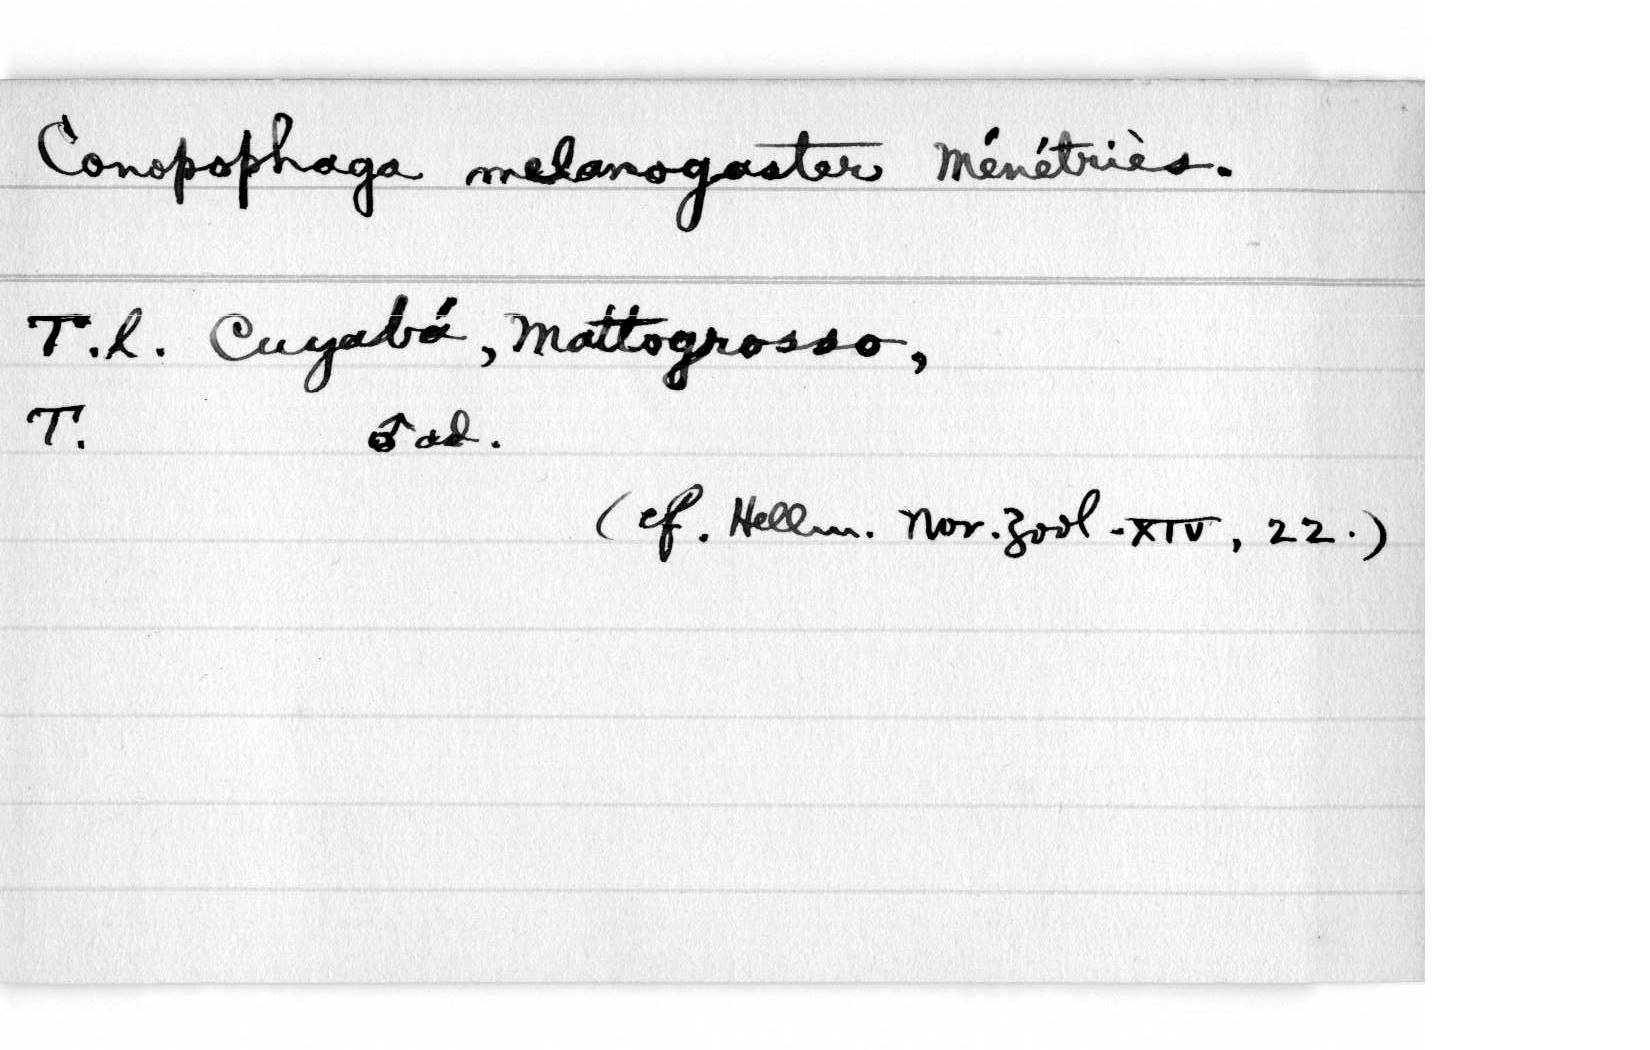 Conopophaga melanogaster Ménétriès.
T.l. Cuyabá, Mattogrosso,
T. ♂ ad.
(cf. Hellm. Nov. Zool - XIV, 22.)